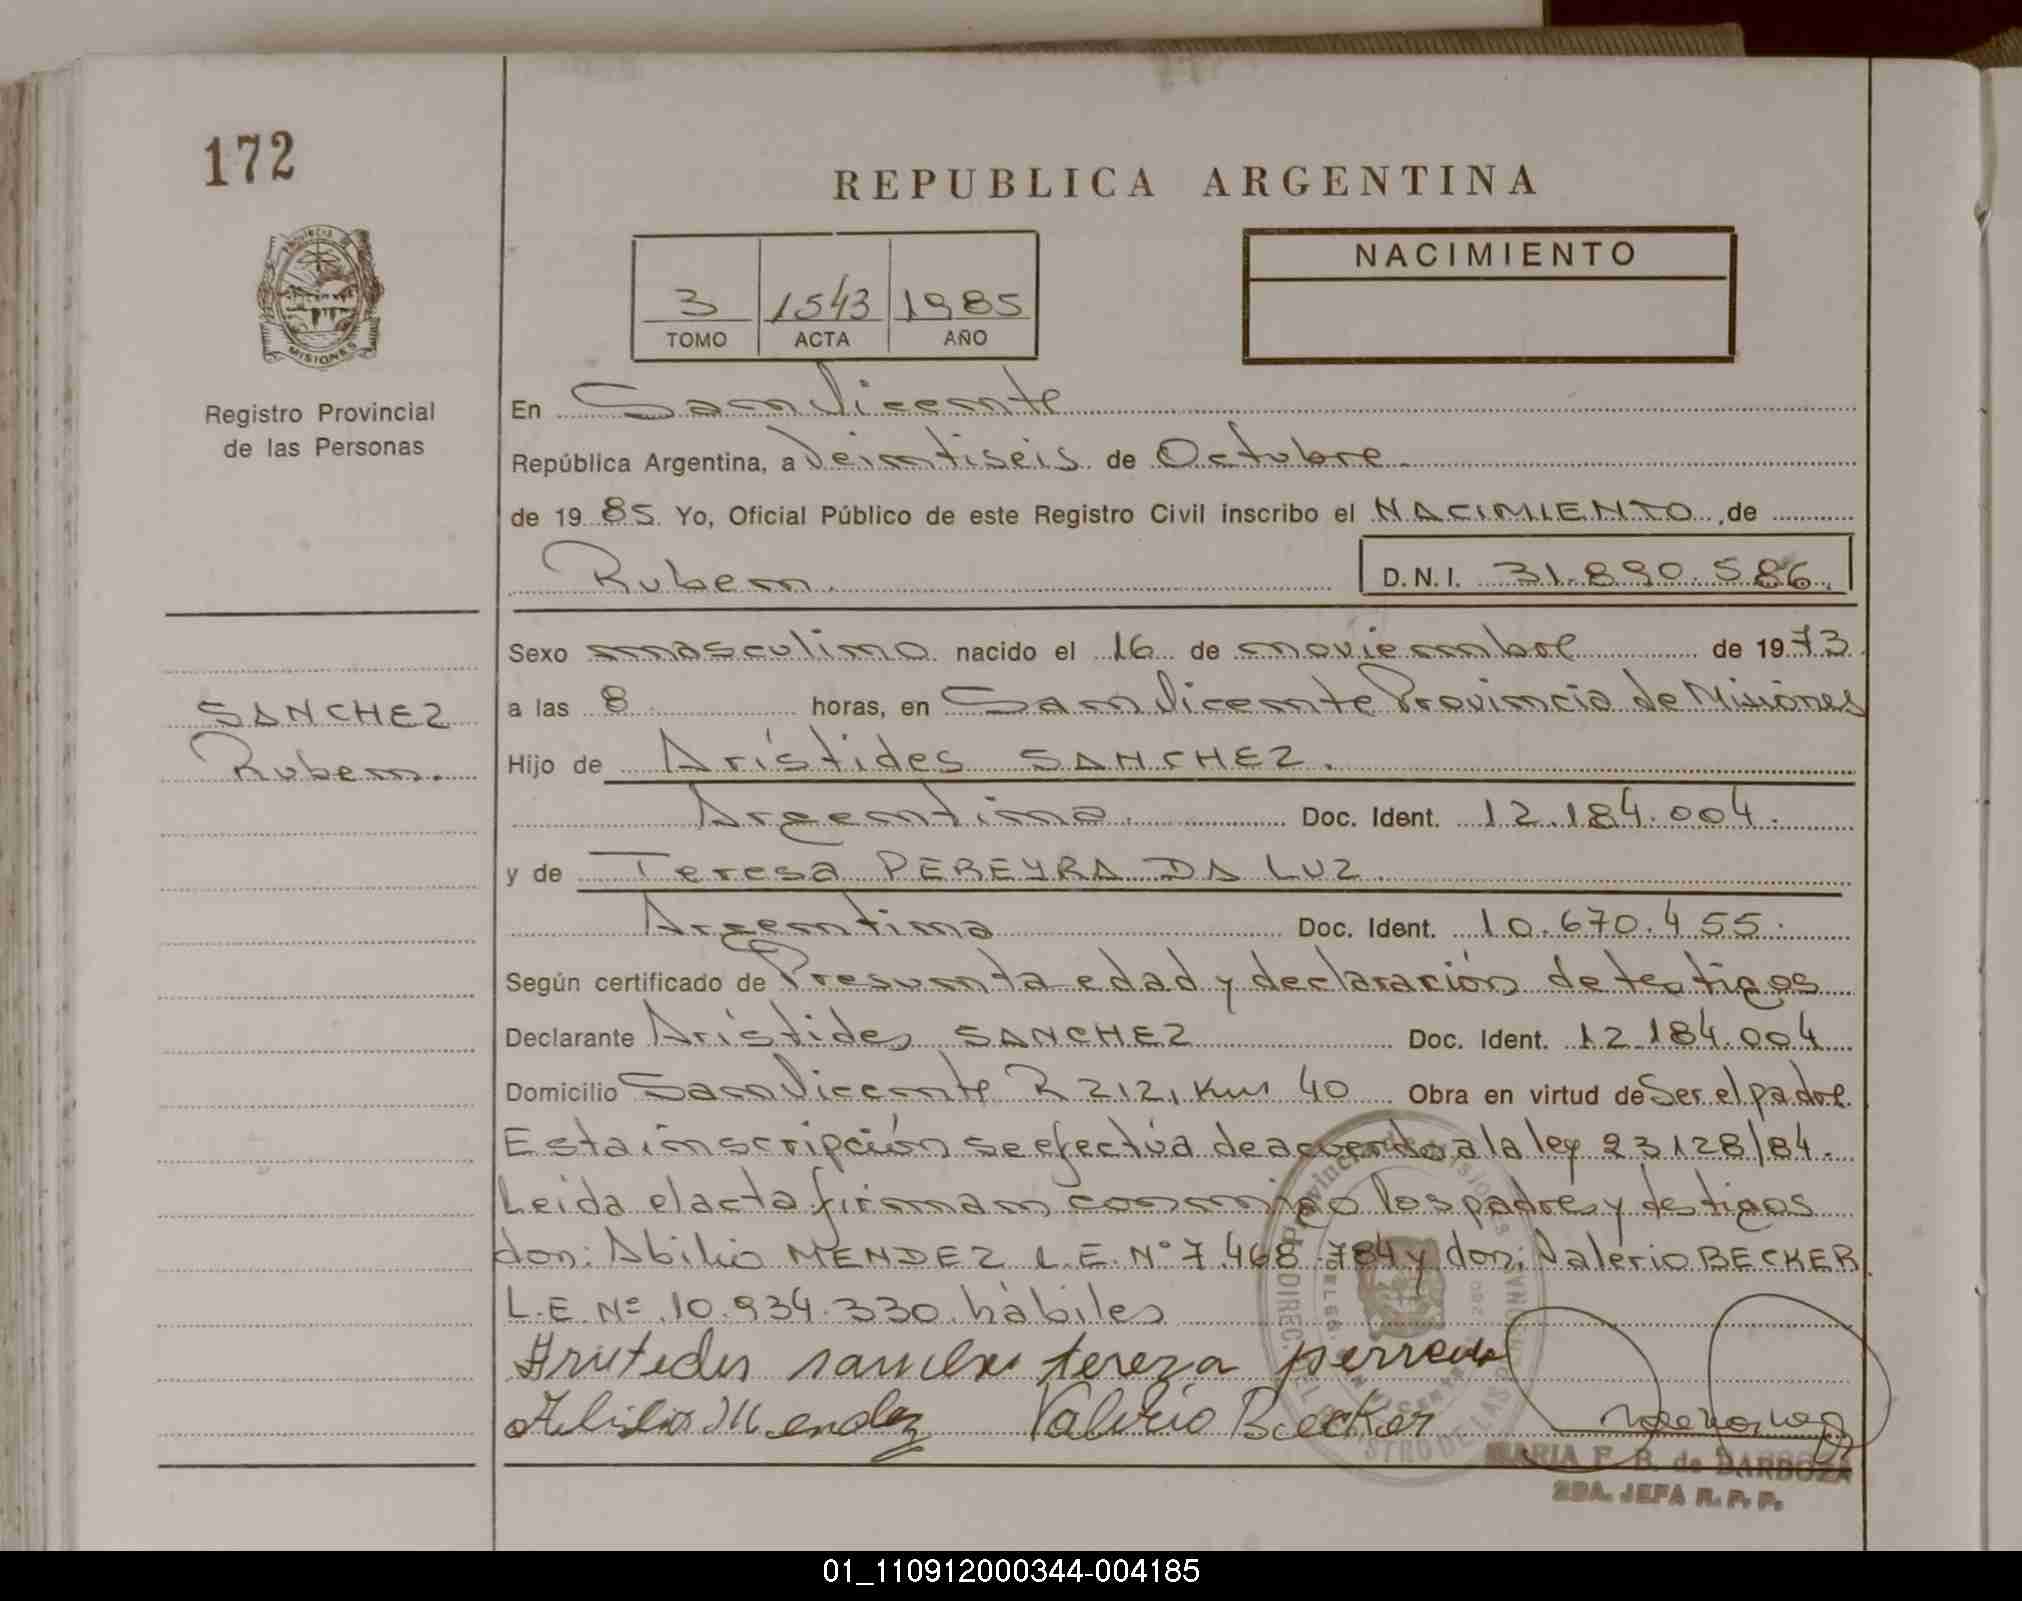 172
REPUBLICA ARGENTINA
NACIMIENTO
3 1543 1985
TOMO ACTA AÑO
MISIONES
Registro Provincial
de las Personas
En San Vicente
República Argentina, a Veintiseis de Octubre
de 19 85 Yo, Oficial Público de este Registro Civil inscribo el NACIMIENTO, de
Ruben. D.N.I. 31.890.586.
Sexo masculino nacido el 16 de noviembre de 1973
SANCHEZ
Ruben.
a las 8 horas, en San Vicente Provincia de Misiones
Hijo de Arístides SANCHEZ.
Argentina. Doc. Ident. 12.184.004.
y de Teresa PEREYRA DA LUZ.
Argentina Doc. Ident. 10.670.455.
Según certificado de Presunta edad y declaración de testigos
Declarante Arístides SANCHEZ Doc. Ident. 12.184.004
Domicilio San Vicente R 212, Km 40 Obra en virtud de Ser el padre.
Esta inscripción se efectúa de acuerdo a la ley 23128/84.
Leida el acta firman conmigo los padres y testigos
don: Abilio MENDEZ L.E. Nº 7.468.784 y don: Valerio BECKER
L.E. Nº 10.934.330. hábiles
sanches tereza
Abilio Mendez Valerio Becker
MARIA F. B. de BARBOZA
2DA. JEFA R. P. P.
01_110912000344-004185